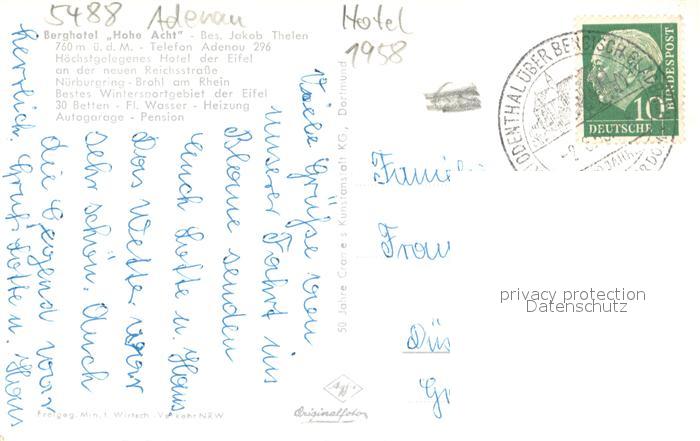 5488 Adenau
Hotel
1958
Berghotel „Hohe Acht" - Bes. Jakob Thelen
760 m ü. d. M. - Telefon Adenau 296
Höchstgelegenes Hotel der Eifel
an der neuen Reichsstraße
Nürburgring-Brohl am Rhein
Bestes Wintersportgebiet der Eifel
30 Betten - Fl. Wasser - Heizung
Autogarage - Pension
Viele Grüße von
unserer Fahrt ins
Blaue senden
Euch Lotte u. Hans
Das Wetter war
sehr schön. Auch
die Gegend war
herrlich. Gruß Lotte u. Hans
50 Jahre Cramers Kunstanstalt KG., Dortmund
Freigeg. Min. f. Wirtsch. - Verkehr NRW
Originalfoto
Frau
ODENTHAL ÜBER BERGISCH
10
DEUTSCHE
BUNDESPOST
privacy protection
Datenschutz